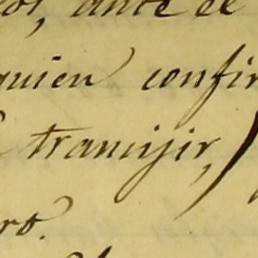 ante el
quien confir
transijir,
ro.